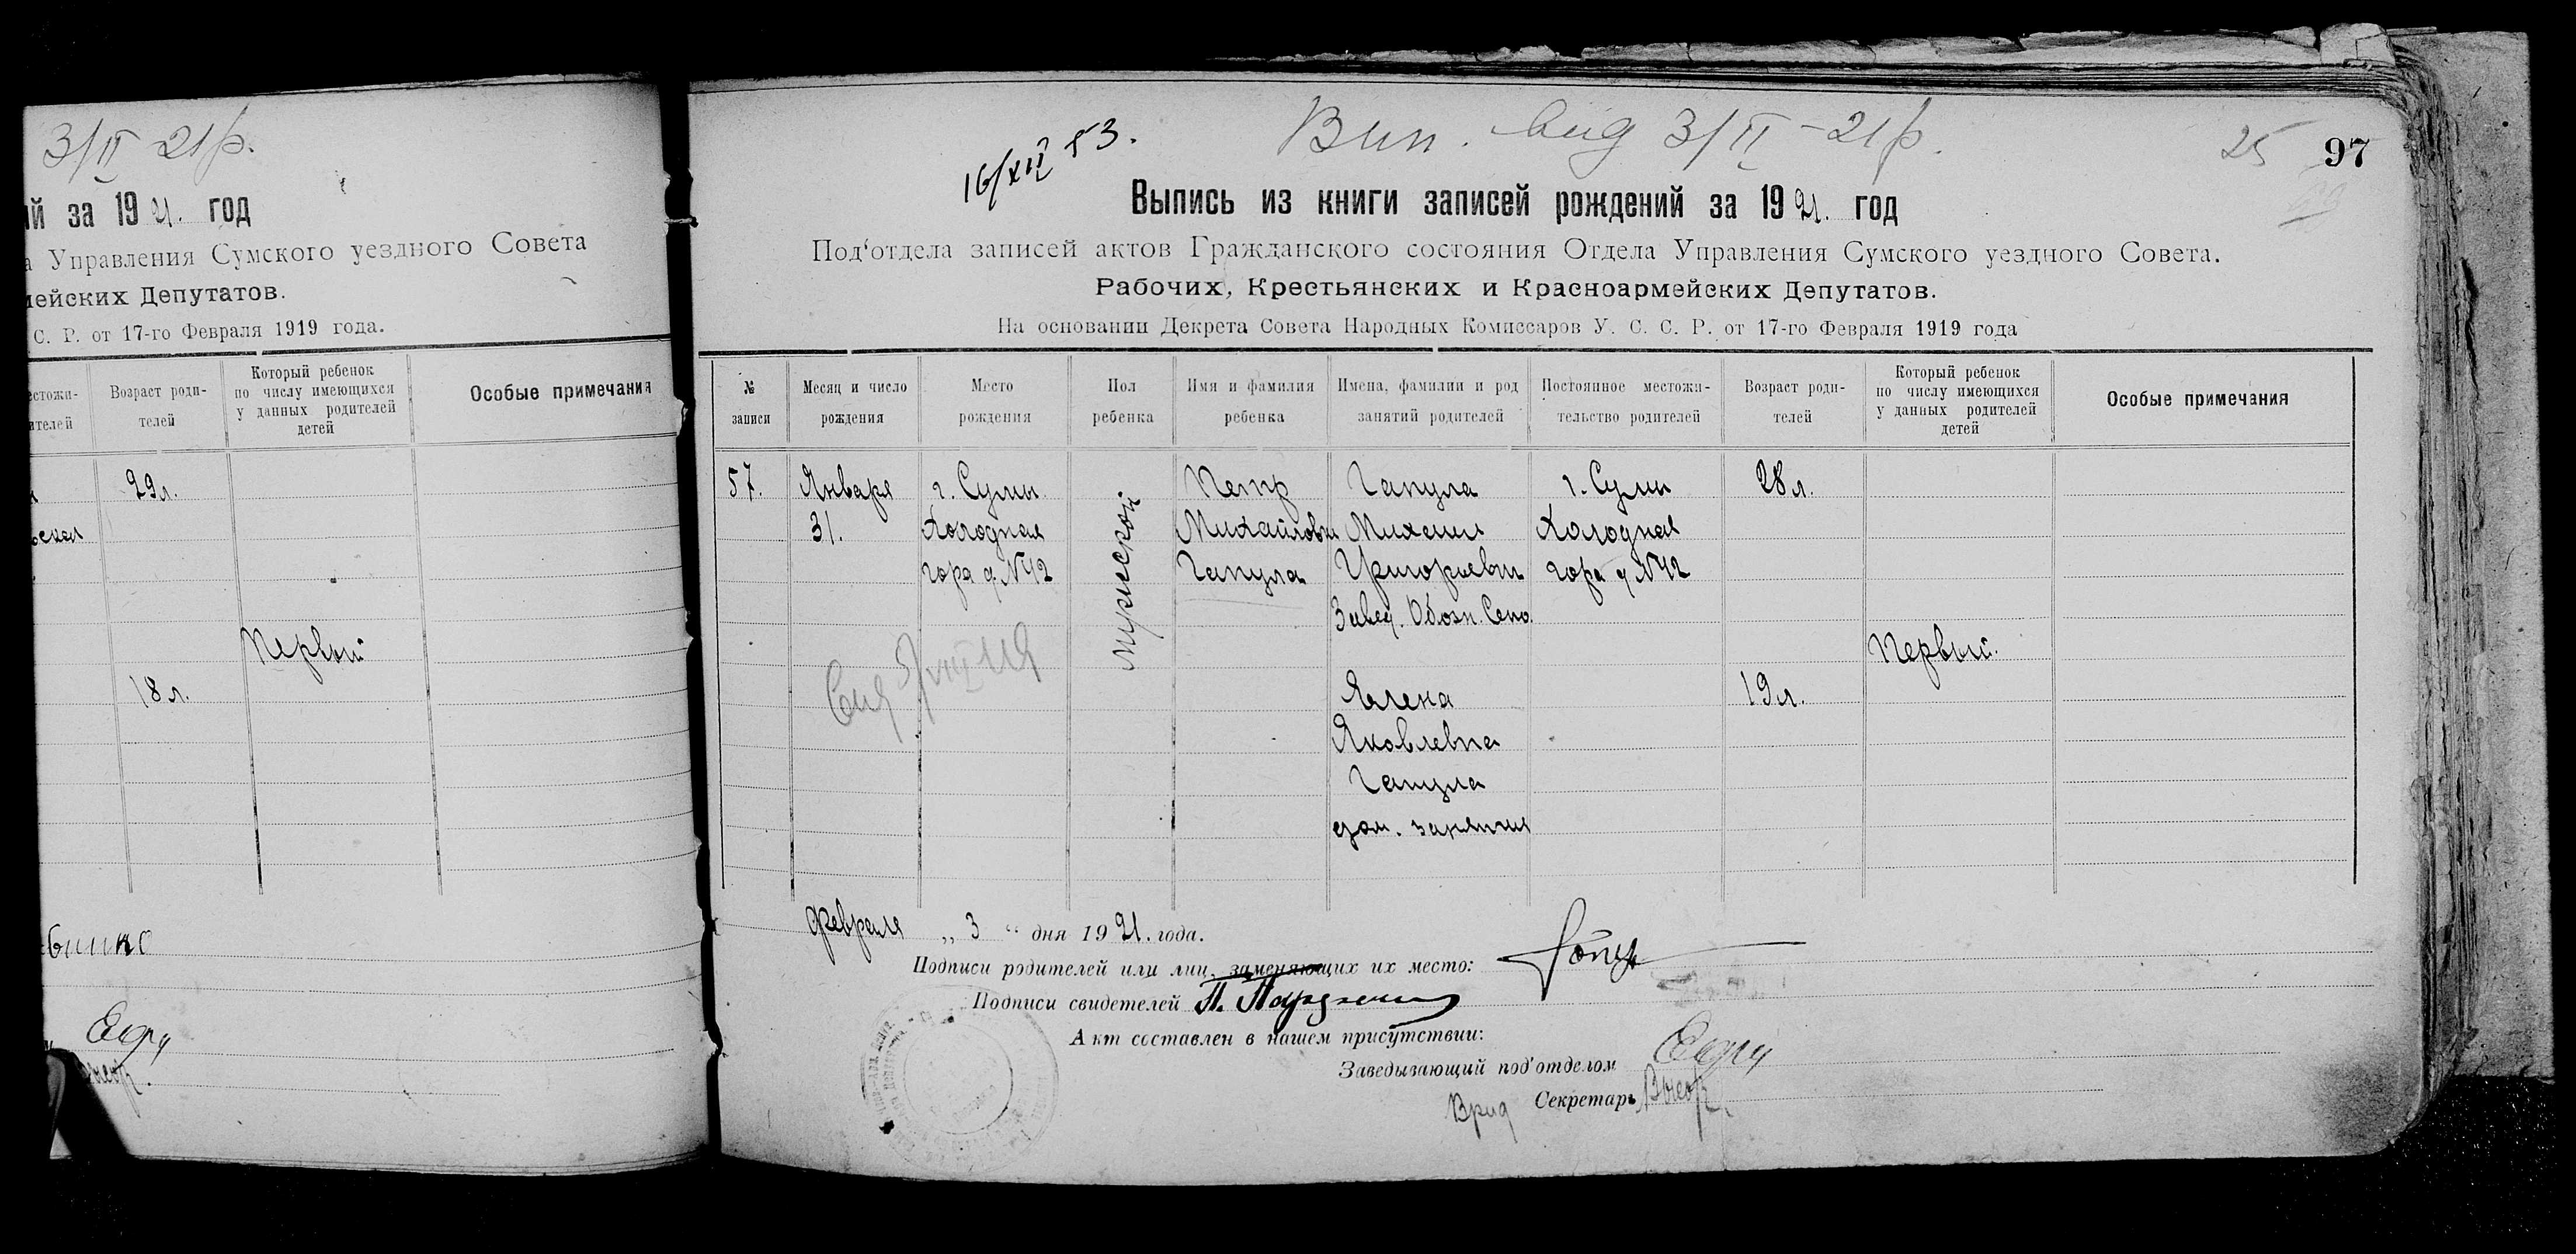 3/II 21р.
ий за 1921. год
а Управления Сумского уездного Совета
мейских Депутатов.
С. Р. от 17-го Февраля 1919 года.
естожи-
ителей
Возраст роди-
телей
Который ребенок
по числу имеющихся
у данных родителей
детей
Особые примечания
29л.
ская
Первый
18 л.
16/XII 53.
Вип. від 3/II-21р.
25 97
Выпись из книги записей рождений за 1921. год
Под'отдела записей актов Гражданского состояния Отдела Управления Сумского уездного Совета.
Рабочих, Крестьянских и Красноармейских Депутатов.
На основании Декрета Совета Народных Комиссаров У. С. С. Р. от 17-го Февраля 1919 года
№
записи
Месяц и число
рождения
Место
рождения
Пол
ребенка
Имя и фамилия
ребенка
Имена, фамилии и род
занятий родителей
Постоянное местожи-
тельство родителей
Возраст роди-
телей
Который ребенок
по числу имеющихся
у данных родителей
детей
Особые примечания
57.
Января
31.
г. Сумы
Холодная
гора д. №42
Мужеской
Петр
Михайлович
Гапула
Гапула
Михаил
Григорьевич
Завед.
Елена
Яковлевна
Гапула
дом. занятия
г. Сумы
Холодная
гора д №42
28 л.
19 л.
Первый.
Февраля „ 3 “ дня 1921. года.
Подписи родителей или лиц, заменяющих их место:
Подписи свидетелей П.
Акт составлен в нашем присутствии:
Заведывающий под'отделом
Врид Секретарь